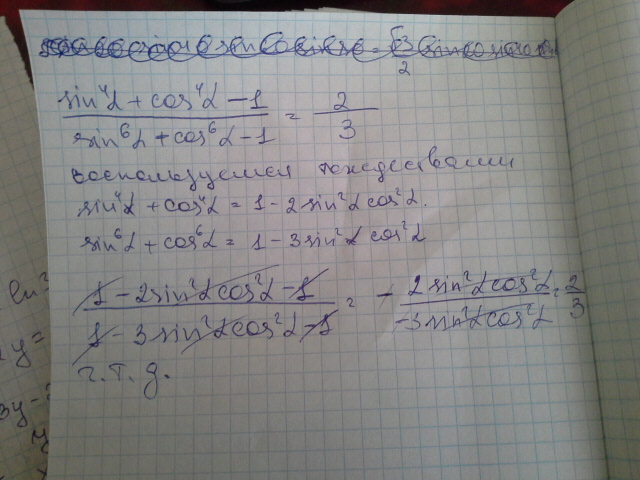 sin⁴α + cos⁴α - 1 / sin⁶α + cos⁶α - 1 = 2/3
воспользуемся тождествами
sin⁴α + cos⁴α = 1 - 2 sin²α cos²α.
sin⁶α + cos⁶α = 1 - 3 sin²α cos²α
1 - 2 sin²α cos²α - 1 / 1 - 3 sin²α cos²α - 1 = - 2 sin²α cos²α / -3 sin²α cos²α = 2/3
ч.т.д.